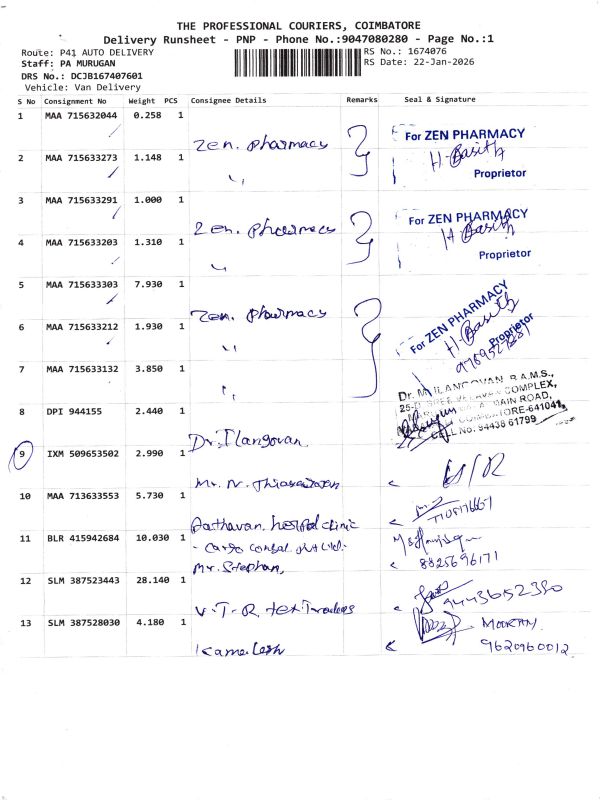 THE PROFESSIONAL COURIERS, COIMBATORE
Delivery Runsheet - PNP - Phone No.:9047080280 - Page No.:1
Route: P41 AUTO DELIVERY
RS No.: 1674076
Staff: PA MURUGAN
RS Date: 22-Jan-2026
DRS No.: DCJB167407601
Vehicle: Van Delivery
S No Consignment No Weight PCS Consignee Details Remarks Seal & Signature
1 MAA 715632044 0.258 1
Zen. Pharmacy
For ZEN PHARMACY
H. Basith
Proprietor
2 MAA 715633273 1.148 1
"
3 MAA 715633291 1.000 1
Zen. Pharmacy
For ZEN PHARMACY
H. Basith
Proprietor
4 MAA 715633203 1.310 1
"
5 MAA 715633303 7.930 1
Zen. Pharmacy
For ZEN PHARMACY
H. Basith
Proprietor
6 MAA 715633212 1.930 1
"
7 MAA 715633132 3.850 1
"
Dr. M. ILANGOVAN, B.A.M.S.,
COMPLEX,
MAIN ROAD,
COIMBATORE-641041,
CELL No: 94438 61799
8 DPI 944155 2.440 1
Dr. Ilangovan
9 IXM 509653502 2.990 1
Mr. N.
10 MAA 713633553 5.730 1
hospital clinic
11 BLR 415942684 10.030 1
Mr. Stephan,
8825696171
12 SLM 387523443 28.140 1
V. T. R. tex Traders
9443652350
13 SLM 387528030 4.180 1
Kamalesh
MOORTHY
9620960012